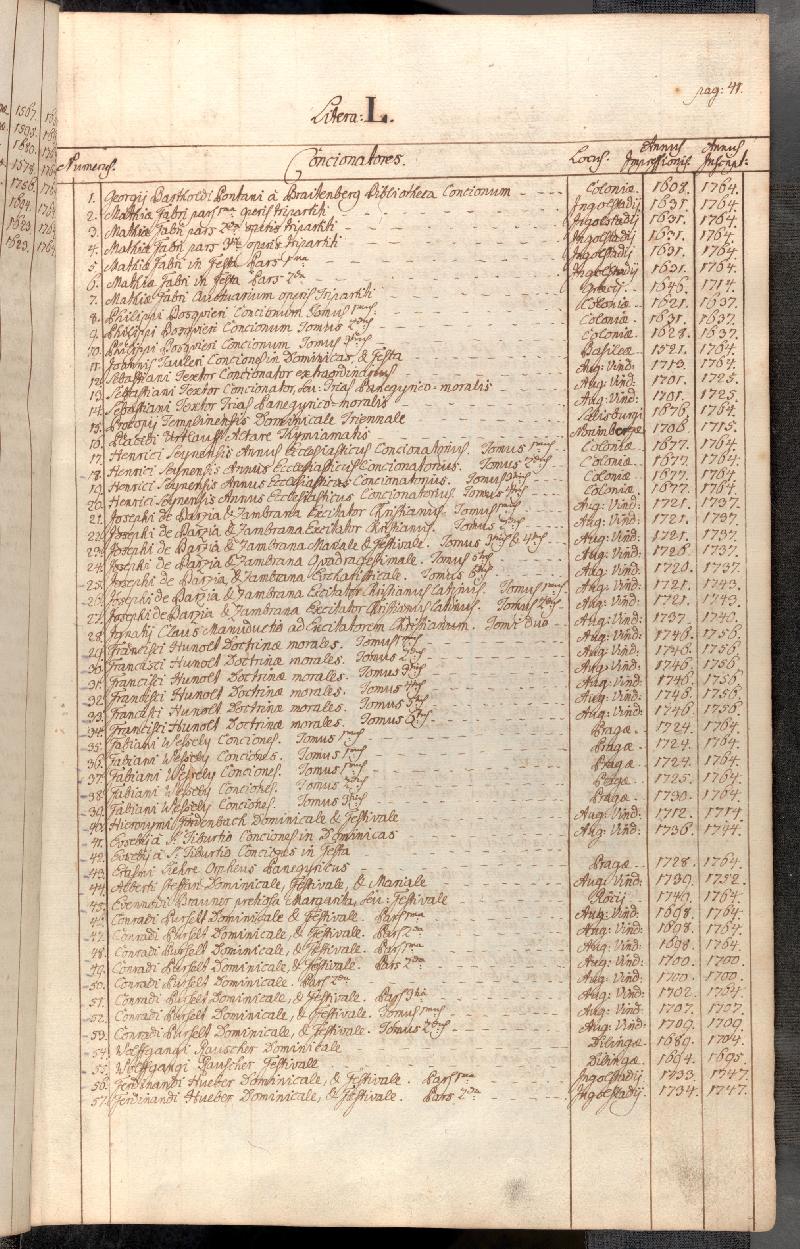 pag: 41.
Litera: L.
Numerus. Concionatores. Locus. Annus Impressionis. Annus Inscript:
1. Georgij Bartholdi Pontani à Braitenberg Bibliotheca Concionum Coloniæ. 1608. 1764.
2. Mathiæ Fabri pars 1ma operis tripartiti Ingolstadij 1631. 1764.
3. Mathiæ Fabri pars 2da operis tripartiti Ingolstadij 1631. 1764.
4. Mathiæ Fabri pars 3tia operis tripartiti Ingolstadij 1631. 1764.
5. Mathiæ Fabri in Festa Pars 1ma Ingolstadij 1631. 1764.
6. Mathiæ Fabri in Festa Pars 2da Ingolstadij 1631. 1764.
7. Mathiæ Fabri Auctuarium operis Tripartiti Græcij. 1646. 1714.
8. Philippi Bosquieri Concionum Tomus 1mus Coloniæ. 1621. 1637.
9. Philippi Bosquieri Concionum Tomus 2dus Coloniæ. 1631. 1637.
10. Philippi Bosquieri Concionum Tomus 3tius Coloniæ. 1628. 1637.
11. Joannis Tauleri Conciones in Dominicas, & Festa Basileæ 1521. 1764.
12. Sebastiani Textor Concionator extraordinarius Aug: Vind: 1713. 1764.
13. Sebastiani Textor Concionator, seu: Trias Panegyrico-moralis Aug: Vind: 1701. 1725.
14. Sebastiani Textor Trias Panegyrico-moralis Aug: Vind: 1701. 1725.
15. Procopij Templinensis Dominicale Triennale Salisburgi 1676. 1764.
16. Placidi Urtlauff Altare Thymiamatis Norimbergæ 1706. 1715.
17. Henrici Seynensis Annus Ecclesiasticus Concionatorius. Tomus 1mus Coloniæ. 1677. 1764.
18. Henrici Seynensis Annus Ecclesiasticus Concionatorius. Tomus 2dus Coloniæ. 1677. 1764.
19. Henrici Seynensis Annus Ecclesiasticus Concionatorius. Tomus 3tius Coloniæ 1677. 1764.
20. Henrici Seynensis Annus Ecclesiasticus Concionatorius Tomus 4tus Coloniæ 1677. 1764.
21. Josephi de Barzia & Zambrana Excitator Christianus. Tomus 1mus Aug: Vind: 1721. 1737.
22. Josephi de Barzia & Zambrana Excitator Christianus. Tomus 2dus Aug: Vind: 1721. 1737.
23. Josephi de Barzia & Zambrana Mariale & Festivale. Tomus 3tius & 4tus Aug: Vind: 1721. 1737.
24. Josephi de Barzia & Zambrana Quadragesimale. Tomus 5tus Aug: Vind: 1726. 1737.
25. Josephi de Barzia, & Zambrana Eucharisticale. Tomus 6tus Aug: Vind: 1720. 1737.
26. Josephi de Barzia & Zambrana Excitator Christianus Latinus. Tomus 1mus Aug: Vind: 1721. 1743.
27. Josephi de Barzia & Zambrana Excitator Christianus Latinus. Tomus 2dus Aug: Vind: 1721. 1743.
28. Ignatij Claus Manuductio ad Excitatorem Christianum. Tomi duo Aug: Vind: 1737. 1740.
29. Francisci Hunolt Doctrinæ morales. Tomus 1mus Aug: Vind: 1746. 1756.
30. Francisci Hunolt Doctrinæ morales. Tomus 2dus Aug: Vind: 1746. 1756.
31. Francisci Hunolt Doctrinæ morales. Tomus 3tius Aug: Vind: 1746. 1756.
32. Francisci Hunolt Doctrinæ morales. Tomus 4tus Aug: Vind: 1746. 1756.
33. Francisci Hunolt Doctrinæ morales. Tomus 5tus Aug: Vind: 1746. 1756.
34. Francisci Hunolt Doctrinæ morales. Tomus 6tus Aug: Vind: 1746 1756.
35. Fabiani Wessely Conciones. Tomus 1mus Pragæ. 1724. 1764.
36. Fabiani Wessely Conciones. Tomus 1mus Pragæ. 1724. 1764.
37. Fabiani Wessely Conciones. Tomus 1mus Pragæ. 1724. 1764.
38. Fabiani Wessely Conciones. Tomus 2dus Pragæ. 1725. 1764.
39. Fabiani Wessely Conciones. Tomus 3tius Pragæ. 1730. 1764.
40. Hieronymi Dominicale & Festivale Aug: Vind: 1712. 1714.
41. Eusebij à S. Tiburtio Conciones in Dominicas Aug: Vind: 1736. 1744.
42. Eusebij à S. Tiburtio Conciones in Festa
43. Erasmi Orpheus Panegyricus Pragæ. 1728. 1764.
44. Alberti Steffan Dominicale, Festivale, & Mariale Aug: Vind: 1739. 1752.
45. Evermodii Brauner pretiosa Margarita, seu: Festivale 1749. 1764.
46. Conradi Purselt Dominicale & Festivale. Pars 1ma Aug: Vind: 1698. 1764.
47. Conradi Purselt Dominicale, & Festivale. Pars 2da Aug: Vind: 1698. 1764.
48. Conradi Purselt Dominicale, & Festivale. Pars 1ma Aug: Vind: 1698. 1764.
49. Conradi Purselt Dominicale, & Festivale. Pars 2da Aug: Vind: 1700. 1700.
50. Conradi Purselt Dominicale. Pars 2da Aug: Vind: 1700. 1700.
51. Conradi Purselt Dominicale, & Festivale. Pars 3tia Aug: Vind: 1702. 1704.
52. Conradi Purselt Dominicale, & Festivale. Tomus 1mus Aug: Vind: 1707. 1707.
53. Conradi Purselt Dominicale, & Festivale. Tomus 2dus Aug: Vind: 1709. 1709.
54. Wolffgangi Rauscher Dominicale Dilingæ 1689. 1704.
55. Wolffgangi Rauscher Festivale Dilingæ. 1694. 1695.
56. Ferdinandi Hueber Dominicale, & Festivale. Pars 1ma Ingolstadij 1733. 1747.
57. Ferdinandi Hueber Dominicale, & Festivale. Pars 2da Ingolstadij. 1734. 1747.